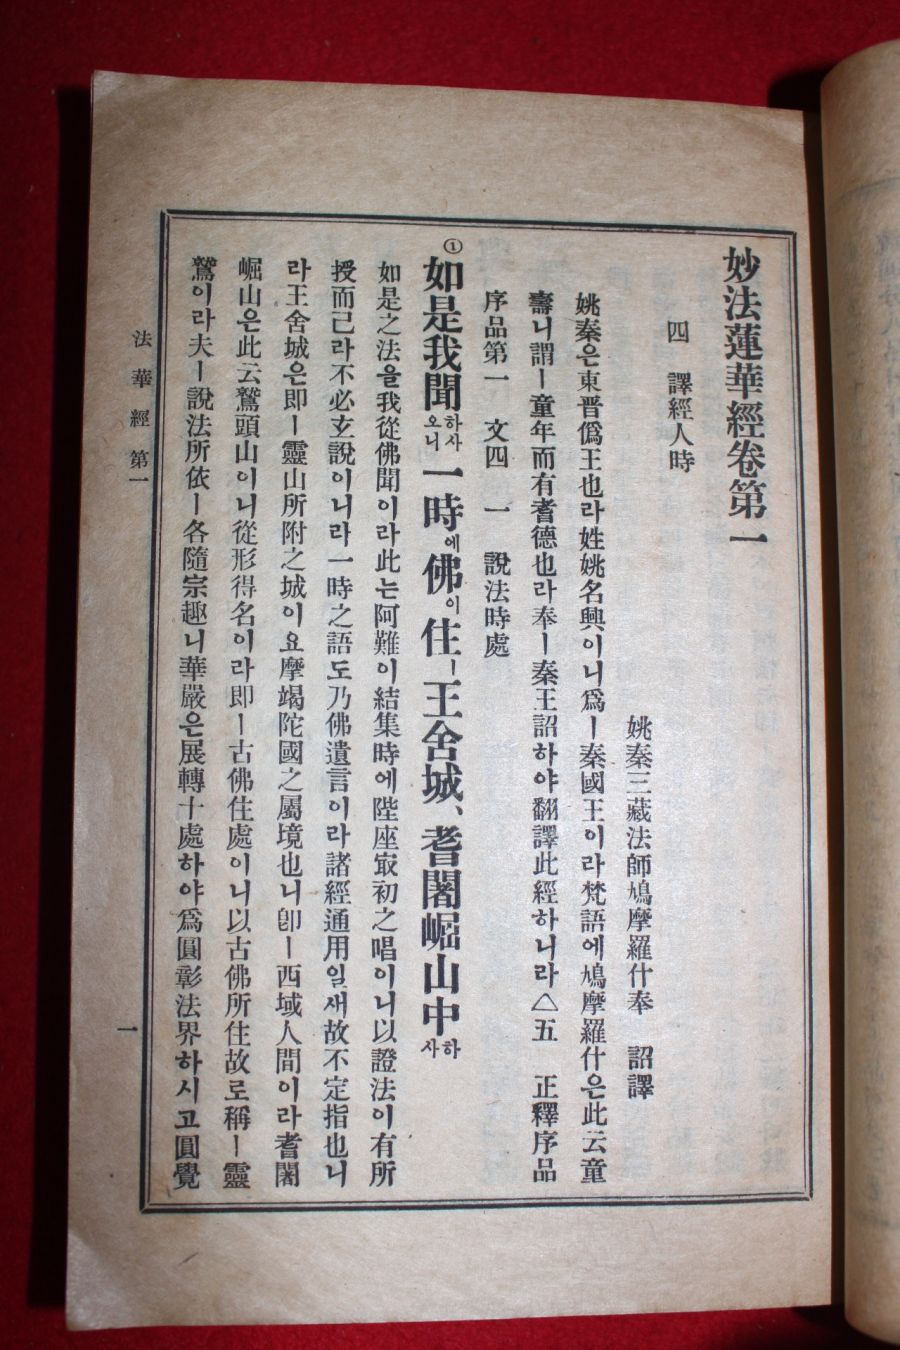 妙法蓮華經卷第一
四 譯經人時
姚秦三藏法師鳩摩羅什奉 詔譯
姚秦은東晋僞王也라姓姚名興이니爲ㅣ秦國王이라梵語에鳩摩羅什은此云童
壽니謂ㅣ童年而有耆德也라奉ㅣ秦王詔하야翻譯此經하니라△五 正釋序品
序品第一 文四 一 說法時處
①如是我聞하사오니一時에佛이住ㅣ王舍城、耆闍崛山中하사
如是之法을我從佛聞이라此는阿難이結集時에陞座㝡初之唱이니以證法이有所
授而已라不必玄說이니라一時之語도乃佛遺言이라諸經通用일새故不定指也니
라王舍城은即ㅣ靈山所附之城이요摩竭陀國之屬境也니卽ㅣ西域人間이라耆闍
崛山은此云鷲頭山이니從形得名이라即ㅣ古佛住處이니以古佛所住故로稱ㅣ靈
鷲이라夫ㅣ說法所依ㅣ各隨宗趣니華嚴은展轉十處하야爲圓彰法界하시고圓覺
法華經 第一
一